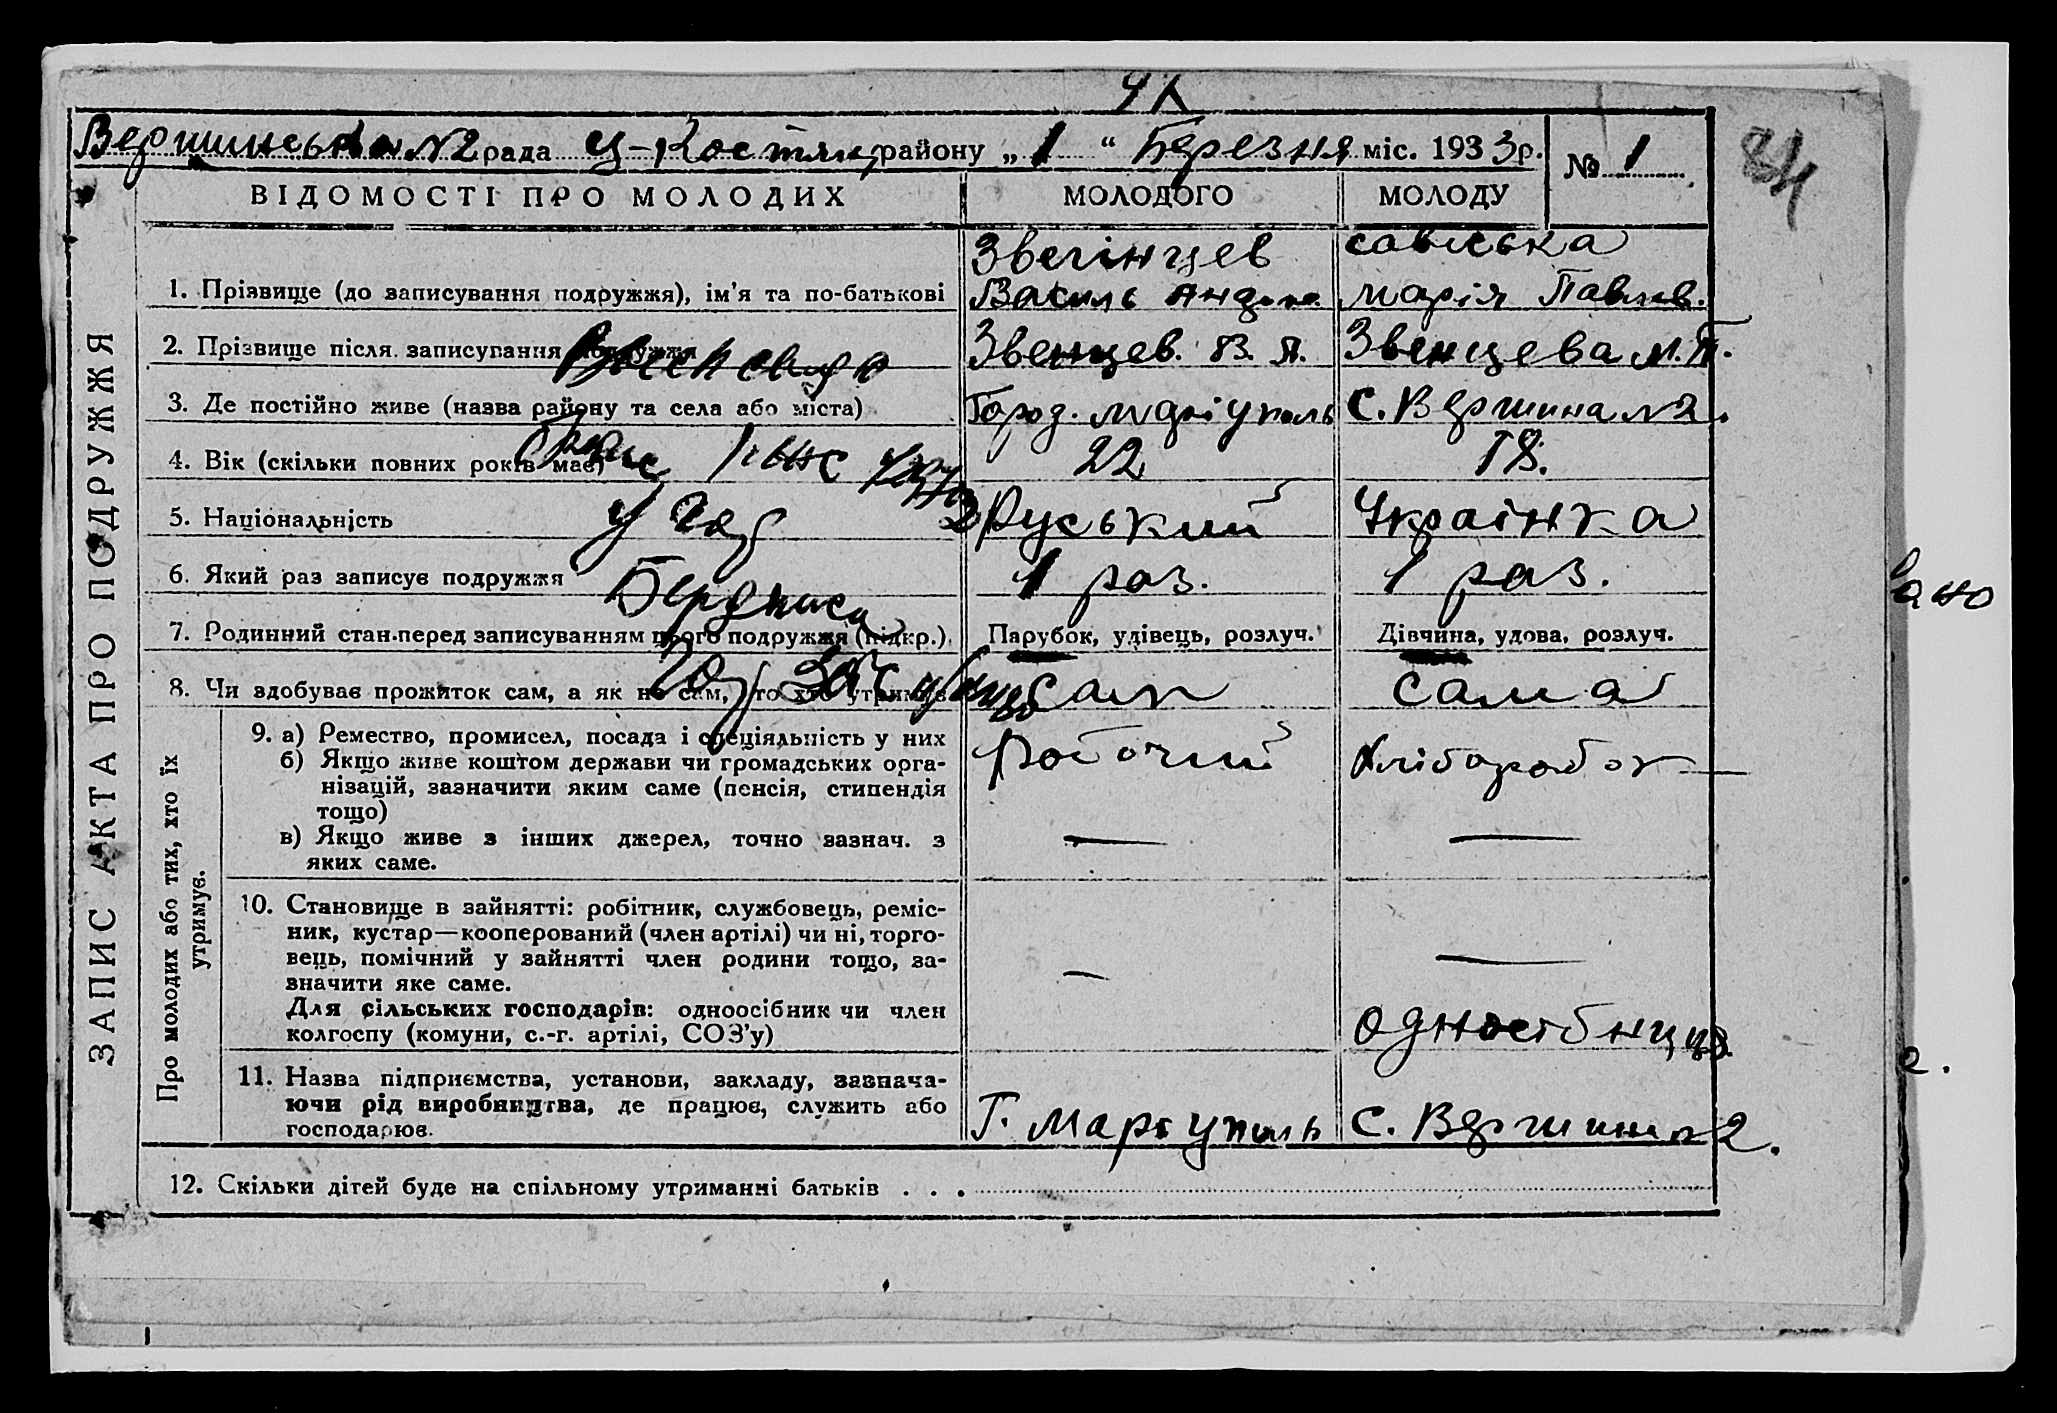 Вершинська №2 рада Ц-Костян району „ 1 “ Березня міс. 1933 р. № 1
84
ВІДОМОСТІ ПРО МОЛОДИХ МОЛОДОГО МОЛОДУ
ЗАПИС АКТА ПРО ПОДРУЖЖЯ
Звегінцев
1. Прізвище (до записування подружжя), ім'я та по-батькові Василь Марія Павлов.
2. Прізвище після записування подружжя Звенцев. В. Звенцева М. П.
3. Де постійно живе (назва району та села або міста) Город. Маріуполь С. Вершина №2.
4. Вік (скільки повних років має) 22 18.
5. Національність Руський Українка
6. Який раз записує подружжя 1 раз. 1 раз.
7. Родинний стан перед записуванням цього подружжя (підкр.) Парубок, удівець, розлуч. Дівчина, удова, розлуч.
8. Чи здобуває прожиток сам, а як не сам, то хто утримує сам сама
Про молодих або тих, хто їх утримує.
9. а) Ремество, промисел, посада і спеціяльність у них Робочий Хлібороб
б) Якщо живе коштом держави чи громадських орга-
нізацій, зазначити яким саме (пенсія, стипендія
тощо)
в) Якщо живе з інших джерел, точно зазнач. з — —
яких саме.
10. Становище в зайнятті: робітник, службовець, реміс-
ник, кустар—кооперований (член артілі) чи ні, торго-
вець, помічний у зайнятті член родини тощо, за- — —
значити яке саме.
Для сільських господарів: одноосібник чи член
колгоспу (комуни, с.-г. артілі, СОЗ'у)
11. Назва підприємства, установи, закладу, зазнача-
ючи рід виробництва, де працює, служить або
господарює. Г. Маріуполь С. Вершина №2.
12. Скільки дітей буде на спільному утриманні батьків . . .